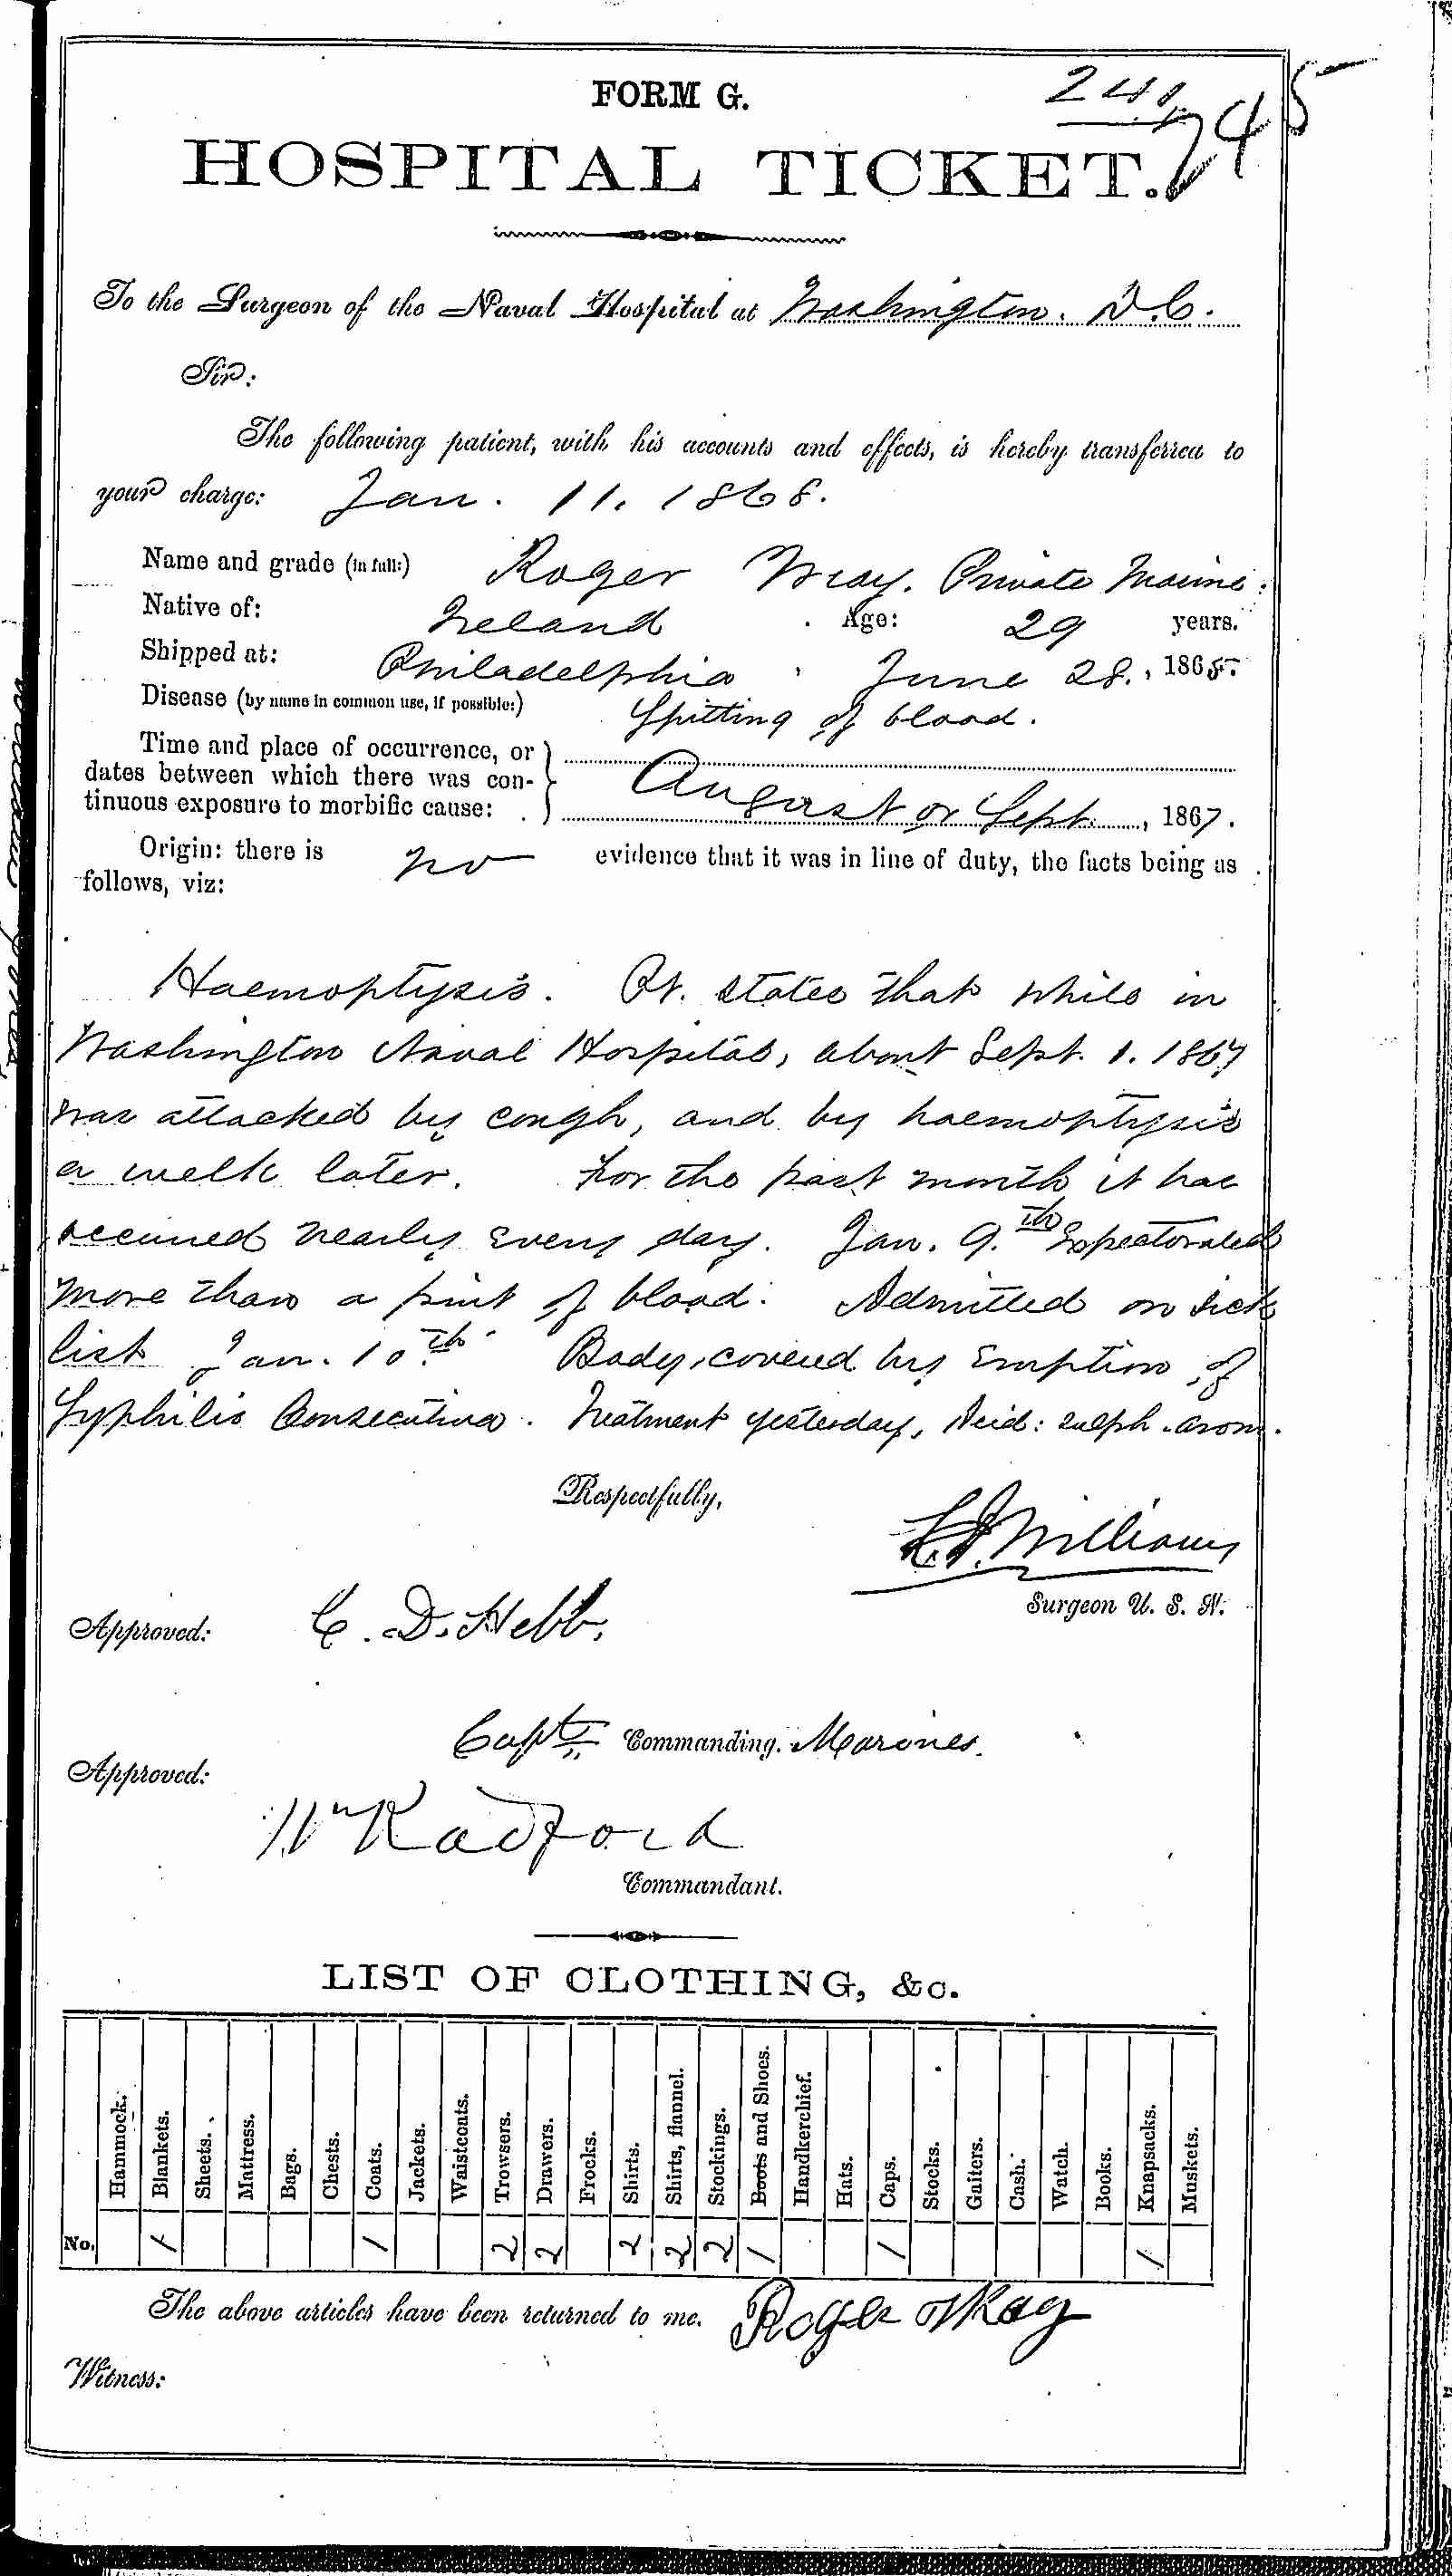 FORM G.
241
745
HOSPITAL TICKET.
To the Surgeon of the Naval Hospital at Washington. D.C.
Sir:
The following patient, with his accounts and effects, is hereby transferred to
your charge: Jan. 11. 1868.
Name and grade (in full:) Roger Private Marine.
Native of: Ireland. Age: 29 years.
Shipped at: Philadelphia, June 28., 1865.
Disease (by name in common use, if possible:) Spitting of blood.
Time and place of occurrence, or
dates between which there was con-
tinuous exposure to morbific cause: August or Sept., 1867.
Origin: there is no evidence that it was in line of duty, the facts being as
follows, viz:
Haemoptysis. Pt. states that while in
Washington Naval Hospital, about Sept. 1. 1867
was attacked by cough, and by haemoptysis
a week later. For the past month it has
occurred nearly every day. Jan. 9.th Expectorated
more than a pint of blood. Admitted on sick
list Jan. 10th. Body covered by Eruption of
Syphilis Consecutiva. Treatment yesterday, Acid: sulph. arom.
Respectfully,
Williams
Surgeon U. S. N.
Approved: C. D. Hebb,
Capt. Commanding. Marines.
Approved:
Wm Radford
Commandant.
LIST OF CLOTHING, &c.
Hammock. Blankets. Sheets. Mattress. Bags. Chests. Coats. Jackets. Waistcoats. Trowsers. Drawers. Frocks. Shirts. Shirts, flannel. Stockings. Boots and Shoes. Handkerchief. Hats. Caps. Stocks. Gaiters. Cash. Watch. Books. Knapsacks. Muskets.
No. 1 1 2 2 2 2 2 1 1 1
The above articles have been returned to me. Roger
Witness: